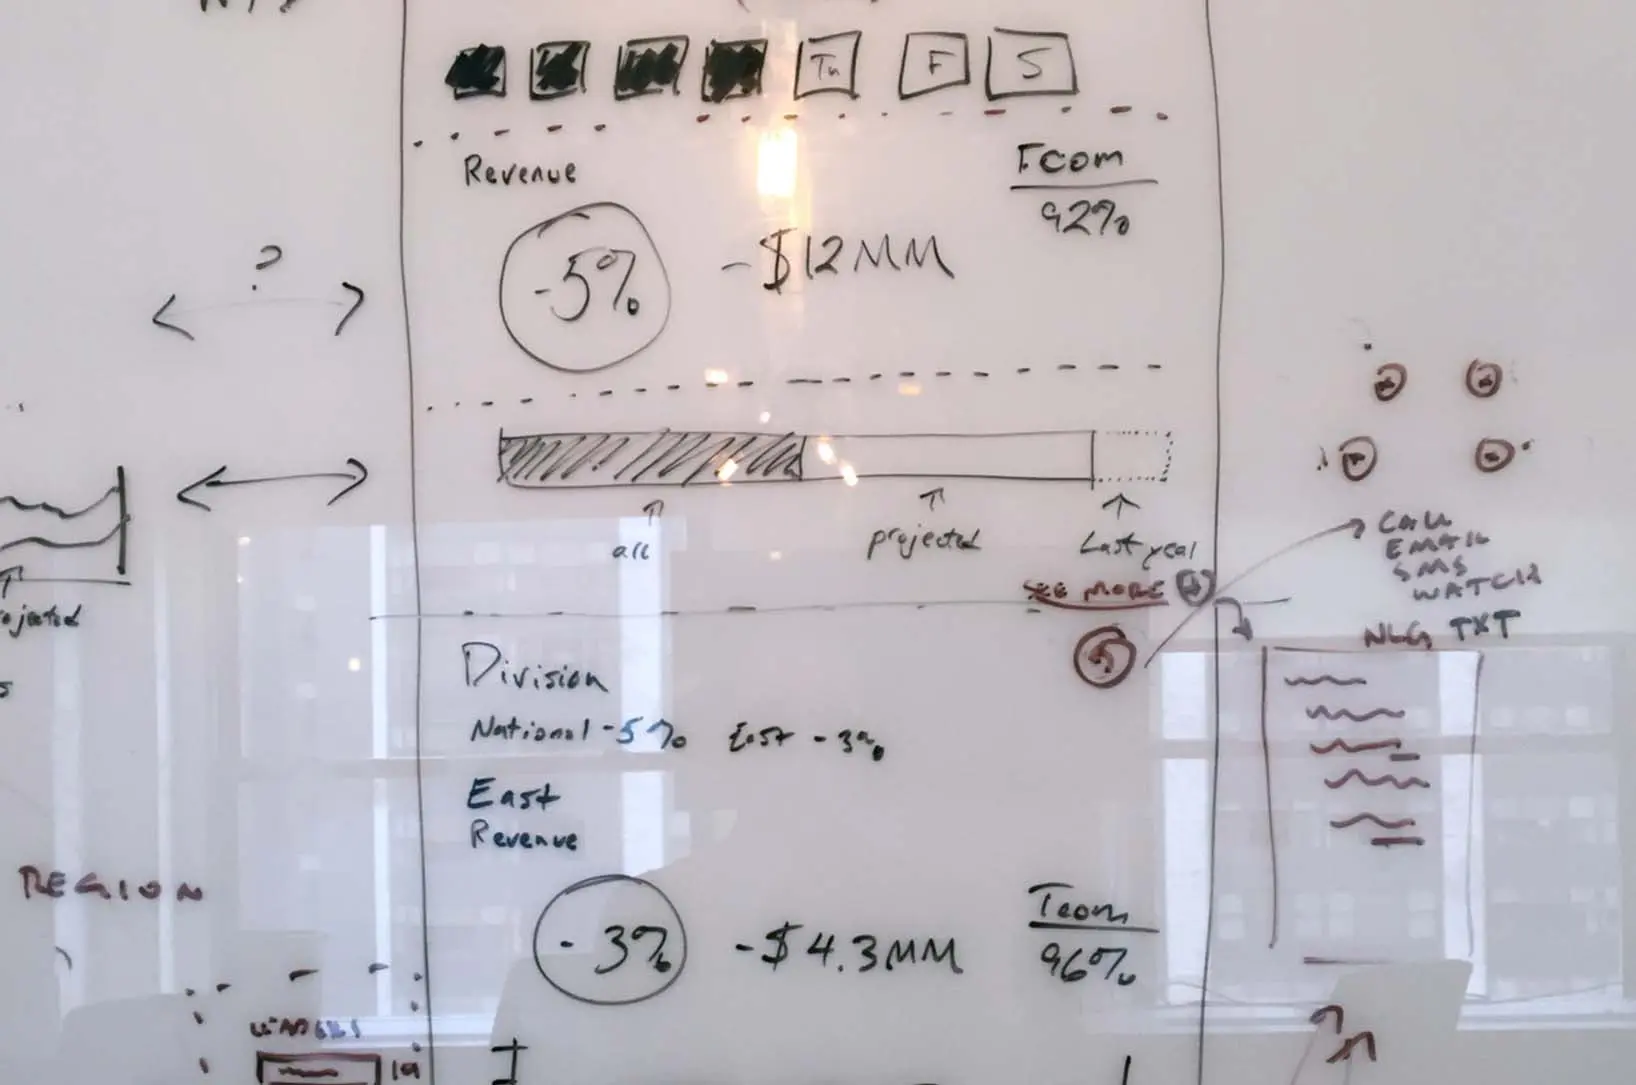 Tu F S
Revenue
Fcom
92%
-5%
-$12MM
?
projected
Last year
SEE MORE
CALL
EMAIL
SMS
WATCH
NLG TXT
Division
National -5% East -3%
East
Revenue
REGION
-3%
-$4.3MM
Tcom
96%